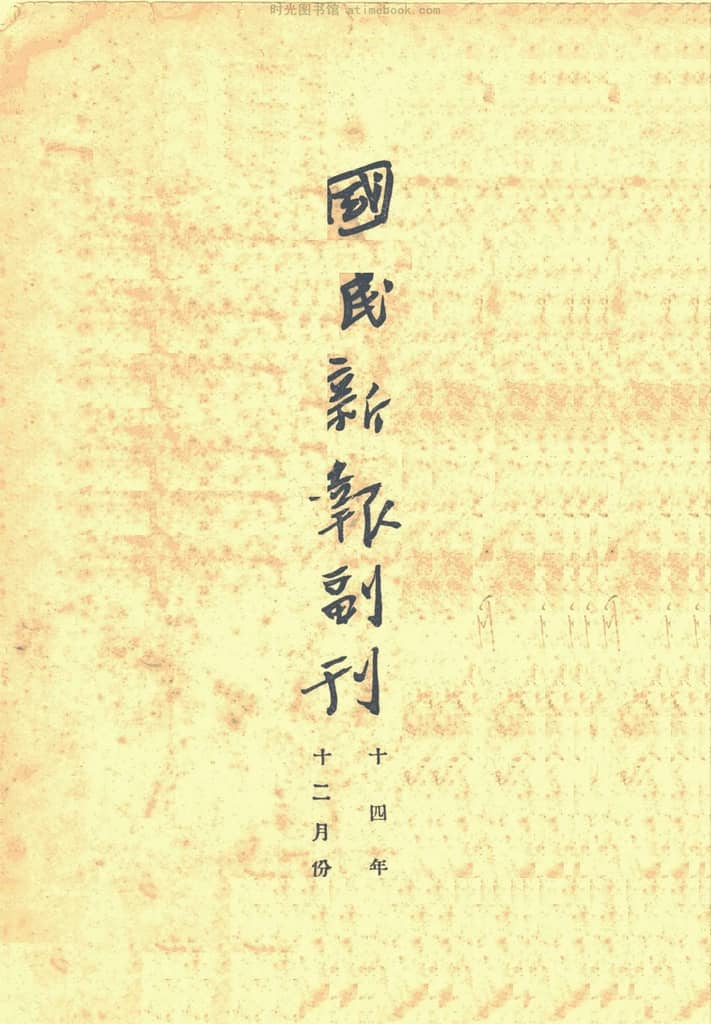 时光图书馆 atimebook.com
國民新報副刊
十四年
十二月份